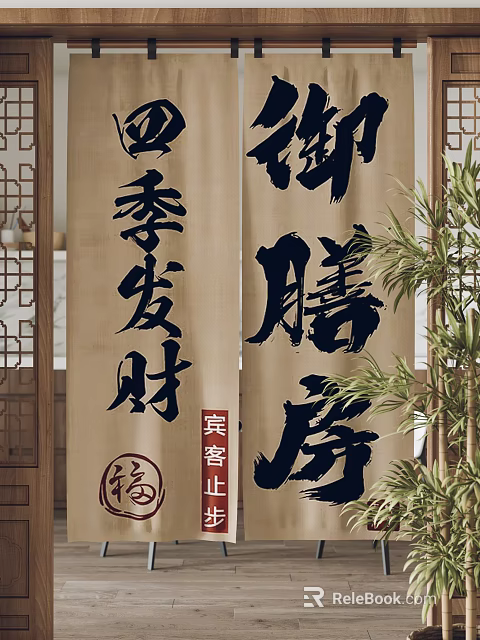 御膳房
四季发财
福
宾客止步
ReleBook.com